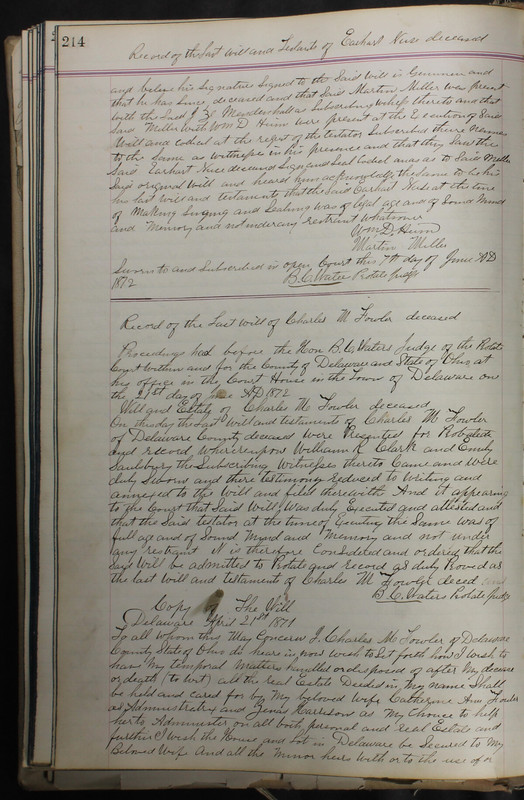 214
Record of the Last Will and Testate of Earhart Nuse deceased
and belive his Signature Signed to the Said Will is Genuine and
that he has since deceased and that Said Martin Miller was present
with the Said J Mendenhall as Subscribing thereto and that
Said Miller with Wm D. Heim were present at the Execution of Said
Will and codicil at the request of the testator Subscribed there names
to the Same as witnesses in his presence and that they Saw the
Said Earhart Nuse deceased Sign and Seal as to Said Miller
Said original Will and heard him acknowledge the Same to be his
his last Will and testament that the Said Earhart Nuse at the time
of Making Singing and Sealing was of legal age and of Sound Mind
and Memory and not under any restraint whatsoever
Wm D. Heim
Martin Miller
Sworn to and Subscribed in open Court this 7th day of June AD
1872 B. C. Waters Probate Judge
Record of the Last Will of Charles M Fowler deceased
Proceedings had before the Hon B. C. Waters Judge of the Probate
Court Within and for the County of Delaware and State of Ohio at
his office in the Court House in the Town of Delaware on
the 21st day of June AD 1872
Will and Estate of Charles M Fowler deceased
On this day the Last Will and testament of Charles M Fowler
of Delaware County deceased were for Probate
and record whereupon William R. Clark and Emily
Saulsbury the Subscribing Witnesses thereto Came and were
duly Sworn and there testimony reduced to Writing and
annexed to the Will and filed therewith And it appearing
to the Court that Said Will was duly Executed and attested and
that the Said testator at the time of Executing the Same was of
full age and of Sound Mind and Memory and not under
any restraint It is therefore Considered and ordered that the
Said Will be admitted to Probate and record as duly Proved as
the last Will and testament of Charles M Fowler deced
B. C. Waters Probate Judge
Copy of The Will
Delaware April 21st 1871
To all whom this May Concern I. Charles M Fowler of Delaware
County State of Ohio do hear in now wish to Set forth how I wish to
have My temporal Matters handled or disposed of after My decease
or death (to wit) all the real Estate Deeded in My name Shall
be held and cared for by My beloved Wife Catherine Ann Fowler
as Administratrix and Zenas Harrison as My Choice to help
her to Administer on all both personal and real Estate and
further I wish the House and Lot in Delaware be Secured to My
Beloved Wife And all the Minor heirs with or to the use of or